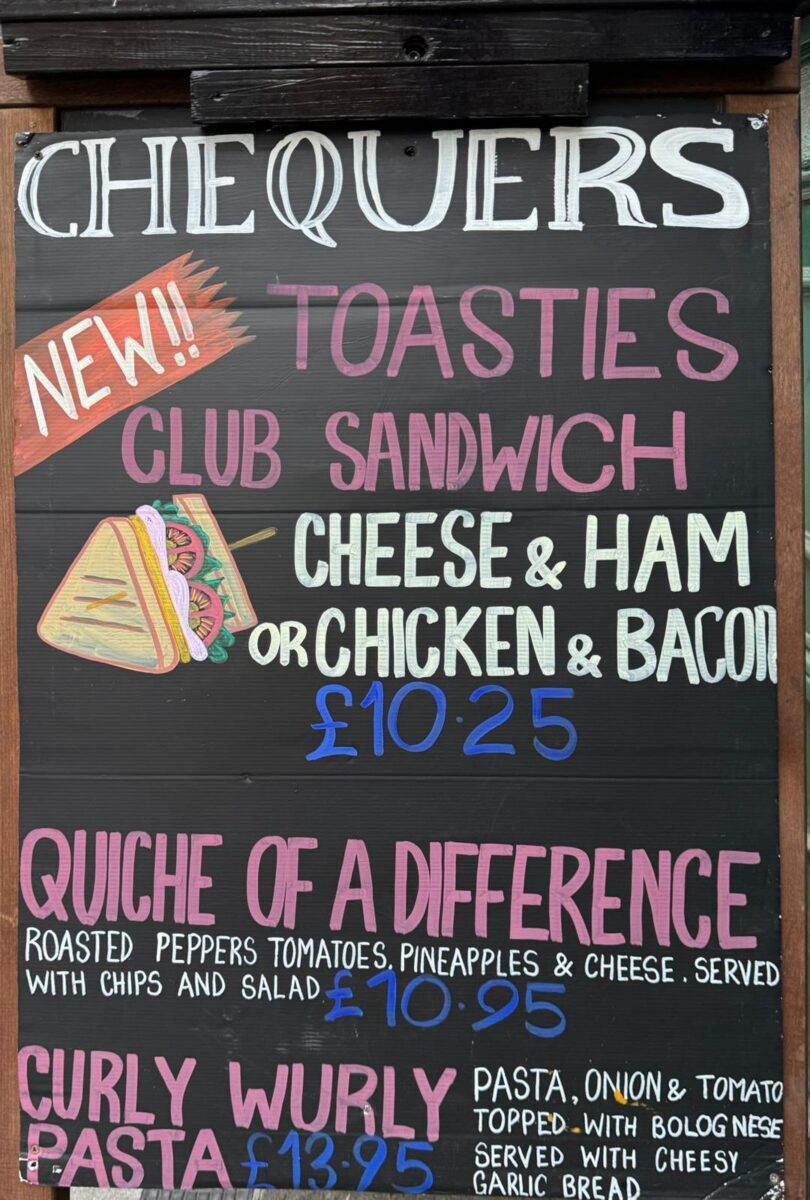 CHEQUERS
NEW!!
TOASTIES
CLUB SANDWICH
CHEESE & HAM
OR CHICKEN & BACON
£10.25
QUICHE OF A DIFFERENCE
ROASTED PEPPERS TOMATOES, PINEAPPLES & CHEESE. SERVED
WITH CHIPS AND SALAD £10.95
CURLY WURLY
PASTA £13.95
PASTA, ONION & TOMATO
TOPPED WITH BOLOGNESE
SERVED WITH CHEESY
GARLIC BREAD